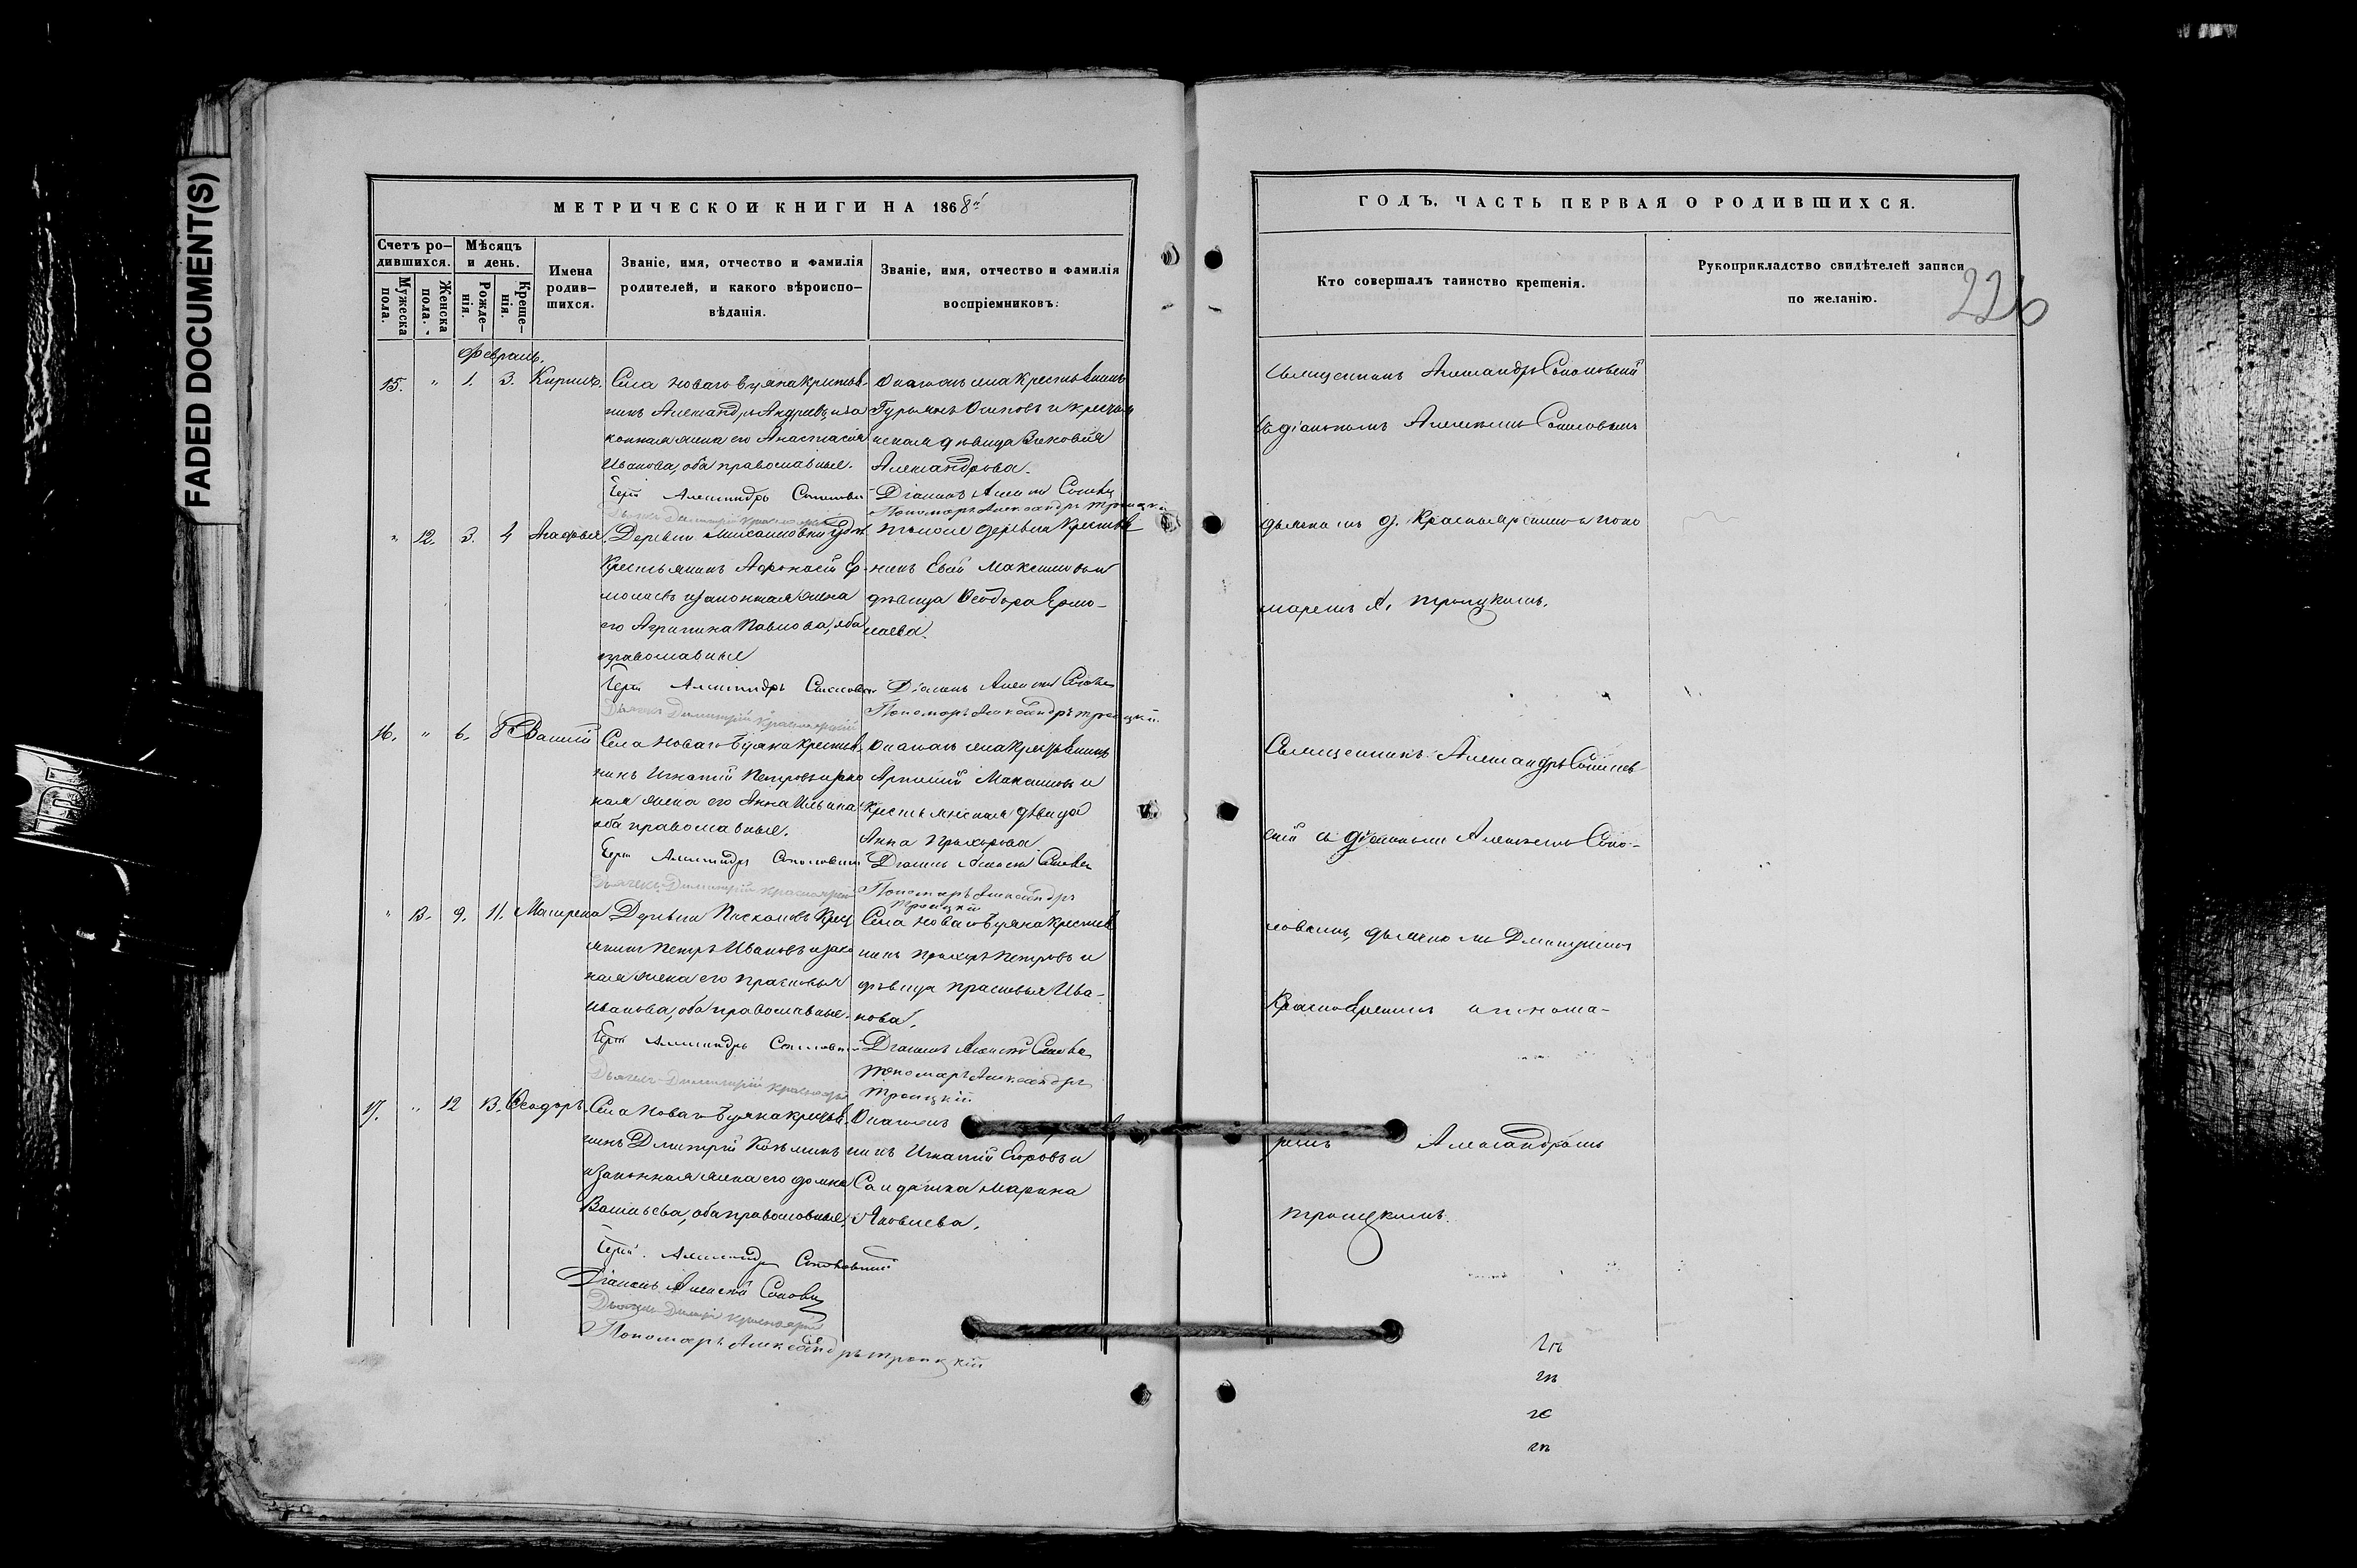 FADED DOCUMENT(S)
МЕТРИЧЕСКОЙ КНИГИ НА 1868й
Счетъ ро-
дившихся.
Мужеска
пола.
Женска
пола.
Мѣсяцъ
и день.
Рожде-
нія.
Креще-
нія.
Имена
родив-
шихся.
Званіе, имя, отчество и фамилія
родителей, и какого вѣроиспо-
вѣданія.
Званіе, имя, отчество и фамилія
воспріемниковъ.
Февраль.
15. " 1. 3. Кирилъ.
Села Новаго Буяна крестья-
нинъ Александръ Андреевъ и за
конная жена его Анастасія
Иванова, оба православные.
Онагожъ села крестьянинъ
Гурьянъ Осиповъ и крестьян
ская дѣвица
Александрова.
Іерей Александръ Соколовскій
Діаконъ Алексей
Пономарь Александръ Троицкій
Дьячекъ Димитрій Красноярскій
" 12. 3. 4 Агафья.
Деревни
крестьянинъ Афонасій Ер-
молаевъ и законная жена
его Агрипина Павлова, оба
православные
тойже деревни крестья
нинъ Максимовъ и
дѣвица Ѳеодора Ермо-
лаева.
Іерей Александръ Соколовскій
Діаконъ Алексей
Дьячекъ Димитрій Красноярскій
Пономарь Александръ Троицкій
16. " 6. 8
Села Новаго Буяна крестья-
нинъ Игнатій Петровъ и зако
ная жена его Анна Ильина
оба православные.
Онагожъ села крестьянинъ
Максимовъ и
крестьянская дѣвица
Анна Прохорова.
Іерей Александръ Соколовскій
Діаконъ Алексей
Дьячекъ Димитрій Красноярскій
Пономарь Александръ
Троицкій
" 13. 9. 11. Матрена
Деревни крест
янинъ Петръ Ивановъ и зако
ная жена его Прасковья
Иванова, оба православные.
Села Новаго Буяна крестья
нинъ Прохоръ Петровъ и
дѣвица Прасковья Ива-
нова.
Іерей Александръ Соколовскій
Діаконъ Алексей
Дьячекъ Димитрій Красноярскій
Пономарь Александръ
Троицкій
17. " 12 13. Ѳеодоръ.
Села Новаго Буяна крестья-
нинъ Дмитрій Козьминъ
и законная жена его Домна
Васильева, оба православные.
Онагожъ
нинъ Игнатій Егоровъ и
Солдатка Марина
Яковлева.
Іерей Александръ Соколовскій
Діаконъ Алексей
Дьячекъ Димитрій Красноярскій
Пономарь Александръ Троицкій
ГОДЪ. ЧАСТЬ ПЕРВАЯ О РОДИВШИХСЯ.
Кто совершалъ таинство крещенія.
Рукоприкладство свидѣтелей записи
по желанію.
226
Священникъ Александръ Соколовскій
съ діакономъ Алексеемъ
дьячкомъ Д. Красноярскимъ и поно
маремъ А. Троицкимъ.
Священникъ Александръ Соколов-
скій съ діакономъ Алексеемъ Соко-
ловымъ, дьячкомъ Димитріемъ
Красноярскимъ и понома-
ремъ Александромъ
Троицкимъ.